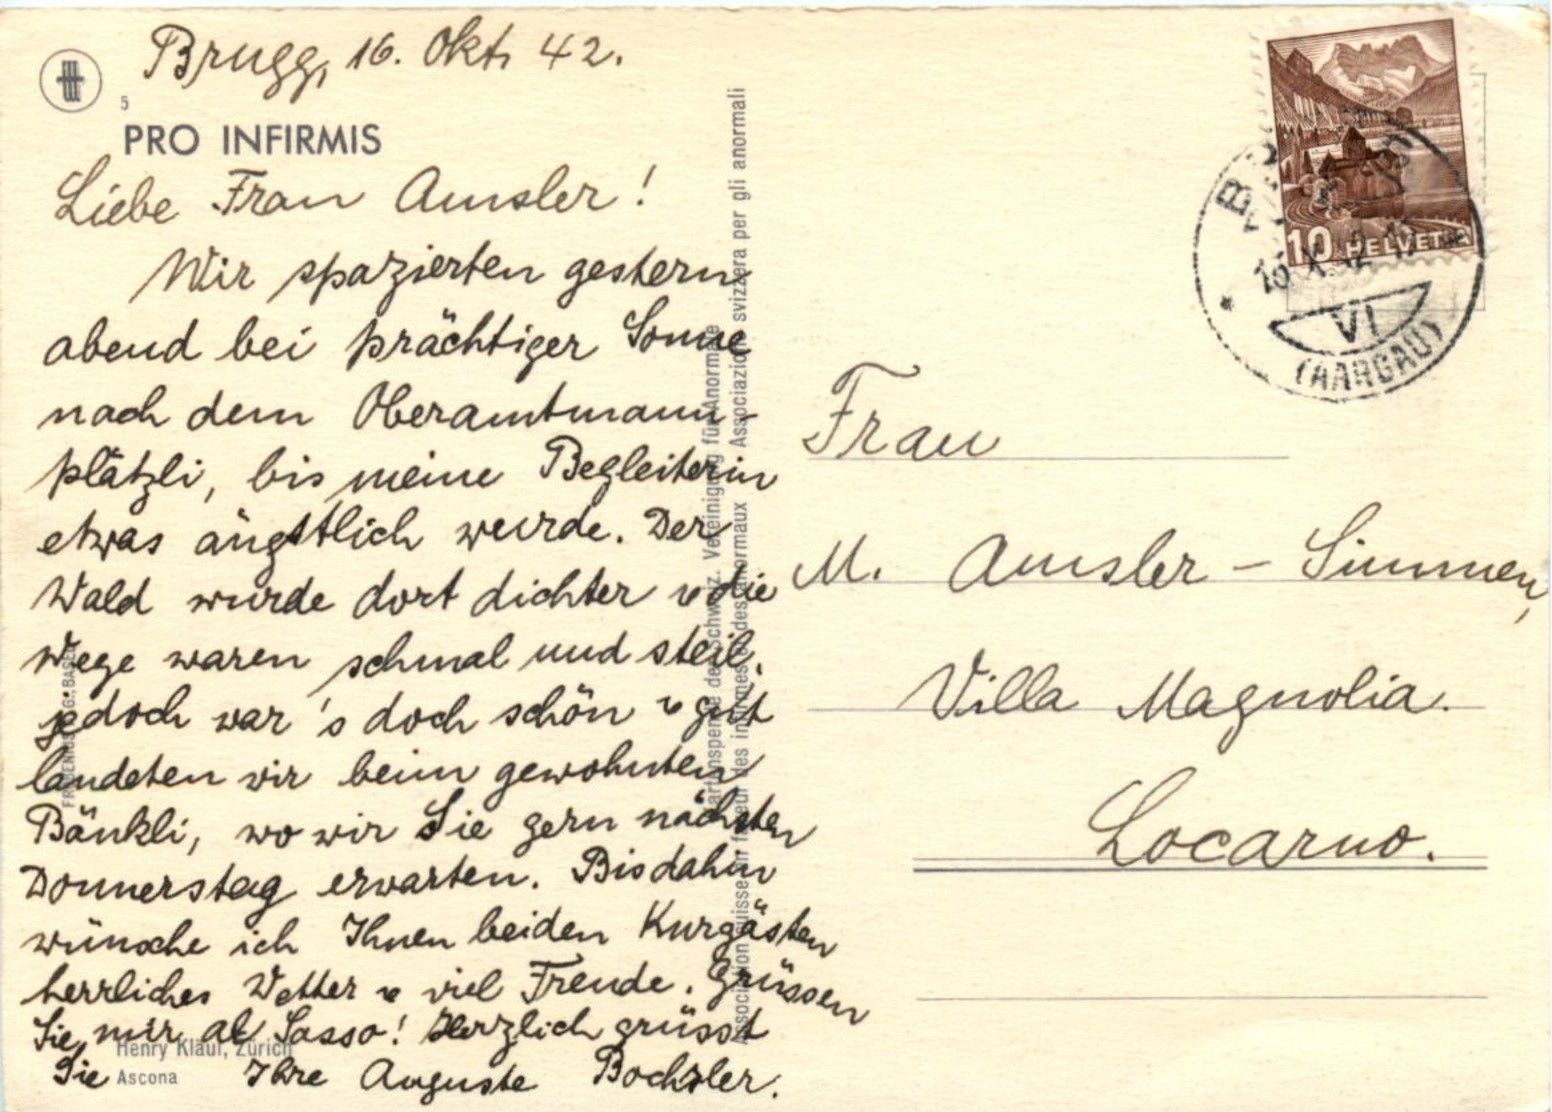 Brugg, 16. Okt. 42.
5
PRO INFIRMIS
Liebe Frau Amsler!
Wir spazierten gestern
abend bei prächtiger Sonne
nach dem Oberamtmann-
plätzli, bis meine Begleiterin
etwas ängstlich wurde. Der
Wald wurde dort dichter u die
Wege waren schmal und steil,
jedoch war's doch schön u gut
landeten wir beim gewohnten
Bänkli, wo wir Sie gern nächsten
Donnerstag erwarten. Bis dahin
wünsche ich Ihnen beiden Kurgästen
herrliches Wetter u viel Freude. Grüssen
Sie mir al Sasso! Herzlich grüsst
Sie Ihre Auguste Bochsler.
Henry Kläui, Zürich
Ascona
Kartenspende der Schweiz. Vereinigung für Anormale
Association suisse en faveur des infirmes et des anormaux Associazione svizzera per gli anormali
10 HELVETIA
16.X.42
VI
(AARGAU)
Frau
M. Amsler-Simmen,
Villa Magnolia.
Locarno.